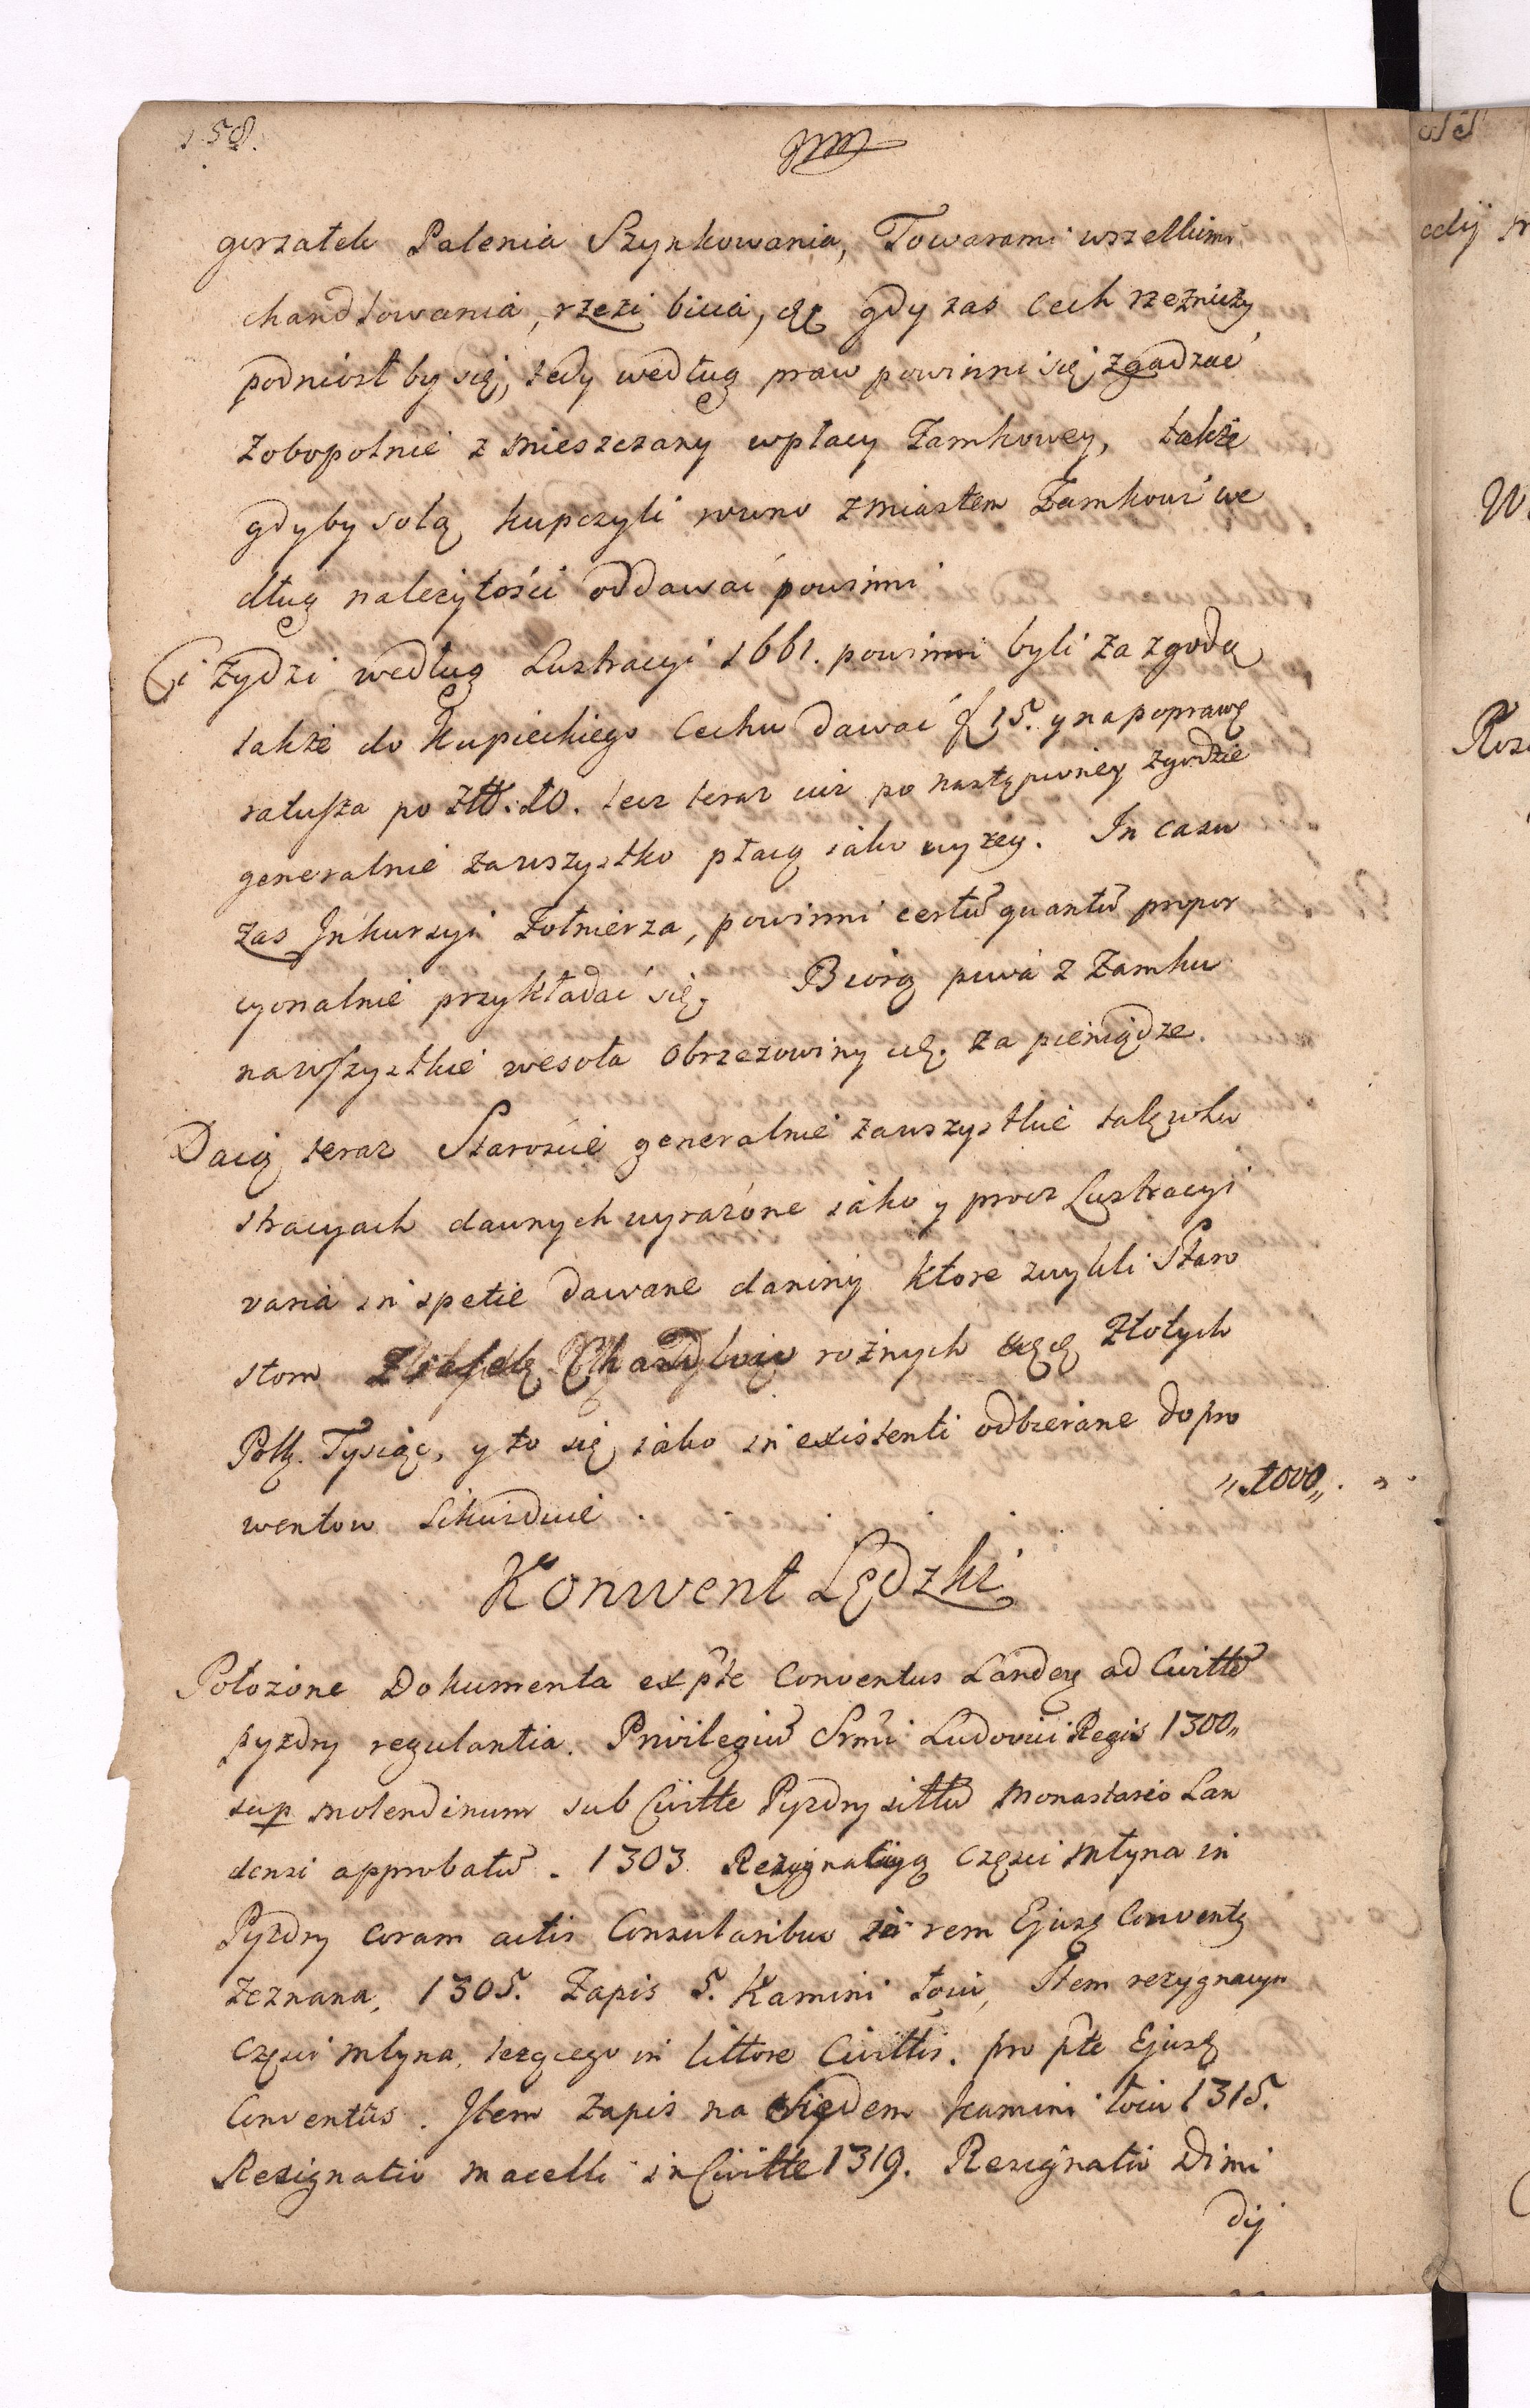 158.
gorzałek Palenia Szynkowania, Towarami wszelkiemi
chandlowania, rzezi bicia, &c gdy zas Cech rzezniczy
podniosł by się, tedy według praw powinni się zgadzać
zobopolnie z mieszczany wpłacy Zamkowey, także
gdyby solą kupczyli rowno zmiastem Zamkowi we
dług należytości oddawać powinni
Ci Żydzi według Lustracyi 1661. powinni byli za zgodą
także do Kupieckiego Cechu dawać f 15. y na poprawę
ratusza po Złł: 20. lecz teraz iuż po następioney zgodzie
generalnie zawszystko płacą iako wyżey. In casu
zas Inkursyi Żołnierza, powinni certũ quantũ propor
cyonalnie przykładać się, Biorą piwa z Zamku
nawszystkie wesoła Obrzezowiny &c. za pieniądze.
Daią teraz Staroście generalnie zawszystkie takwlu
stracyach dawnych wyrażone iako y procz Lustracyi
varia in spetie dawane daniny które zwykli Staro
stom rożnych Złotych
Polk. Tysiąc, y to się iako in existenti odbierane dopro
wentow likwiduie . „1000„
Konwent Lędzki
Położone Dokumenta ex pte Conventus Landen ad Civittẽ
Pyzdry regulantia. Privilegiũ Srmi Ludovici Regis 1300„
sup molendinum sub Civitte Pyzdry sittũ Monastario Lan
densi approbatũ. 1303 Rezygnacyą Części Młyna in
Pyzdry coram actis Consularibus in rem Ejusd Convents
zeznana, 1305. Zapis 5. Kamini łoiu, Item rezygnacyn
Części Młyna, leżącego in littore Civittis. pro pte Ejusd
Conventus. Item Zapis na Siędem kamini łoiu 1315.
Resignatio macelli in Civitte 1319. Resignatio Dimi
dij